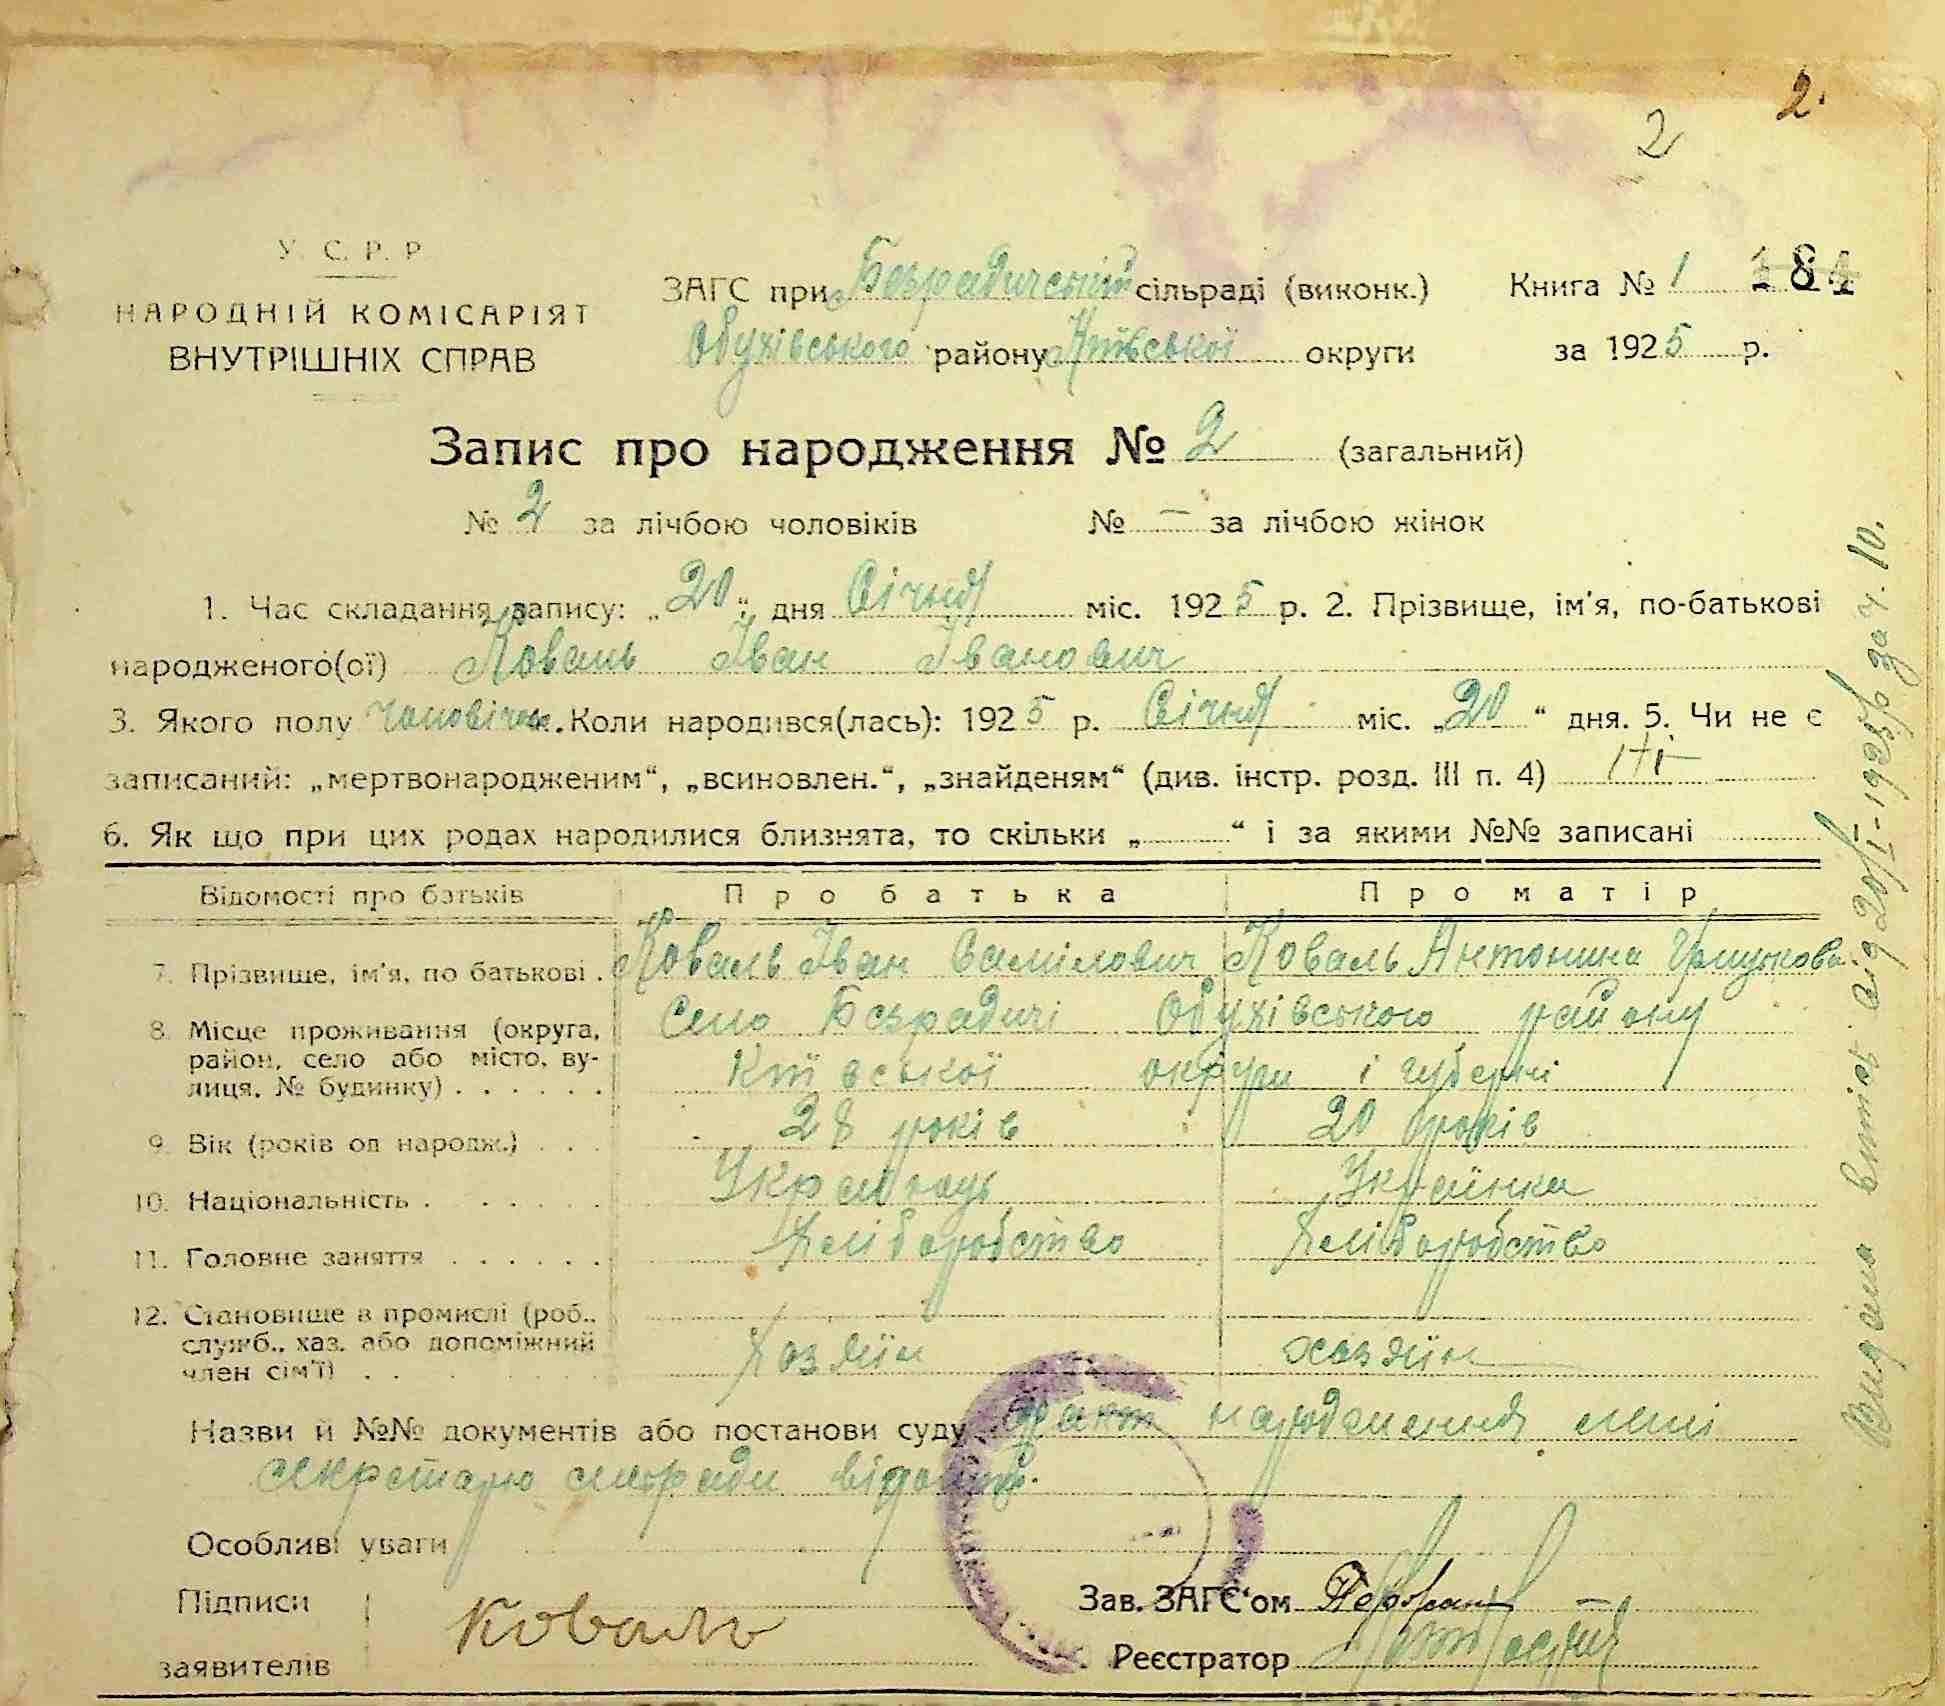 2.
2
У. С. Р. Р
НАРОДНІЙ КОМІСАРІЯТ
ВНУТРІШНІХ СПРАВ
ЗАГС при Безрадичській сільраді (виконк.)
Обухівського району Київської округи
Книга № 1 184
за 1925 р.
Запис про народження № 2 (загальний)
№ 2 за лічбою чоловіків № — за лічбою жінок
1. Час складання запису: „20“ дня Січня міс. 1925 р. 2. Прізвище, ім'я, по-батькові
народженого(ої) Коваль Іван Іванович
3. Якого полу чоловічого. Коли народився(лась): 1925 р. Січня міс. „20“ дня. 5. Чи не є
записаний: „мертвонародженим“, „всиновлен.“, „знайденям“ (див. інстр. розд. III п. 4) Ні
6. Як що при цих родах народилися близнята, то скільки „ “ і за якими №№ записані
Відомості про батьків Про батька Про матір
7. Прізвище, ім'я, по батькові . Коваль Іван Самілович Коваль Антонина
8. Місце проживання (округа, район, село або місто, вулиця, № будинку) . . . . . . Село Безрадичі Обухівського району
Київської округи і губерні
9. Вік (років од народж.) . . . 28 років 20 років
10. Національність . . . . . . Українець Українка
11. Головне заняття . . . . . . Хліборобство Хліборобство
12. Становище в промислі (роб., служб., хаз. або допоміжний член сім'ї) . . Хазяїн хазяїн
Назви й №№ документів або постанови суду Факт народження мені
секретарю сільради відомий.
Особливі уваги
Підписи
заявителів
Коваль
Зав. ЗАГС'ом
Реєстратор
Видано витяг від 20/I-1925р за ч. 10.